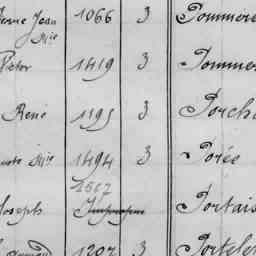 Jean 1066 3 Pommere
Mie
Victor 1419 3 Pommer
René 1195 3 Porch
Mie 1494 3 Porée
1667
Joseph Portais
1207 3 Portele